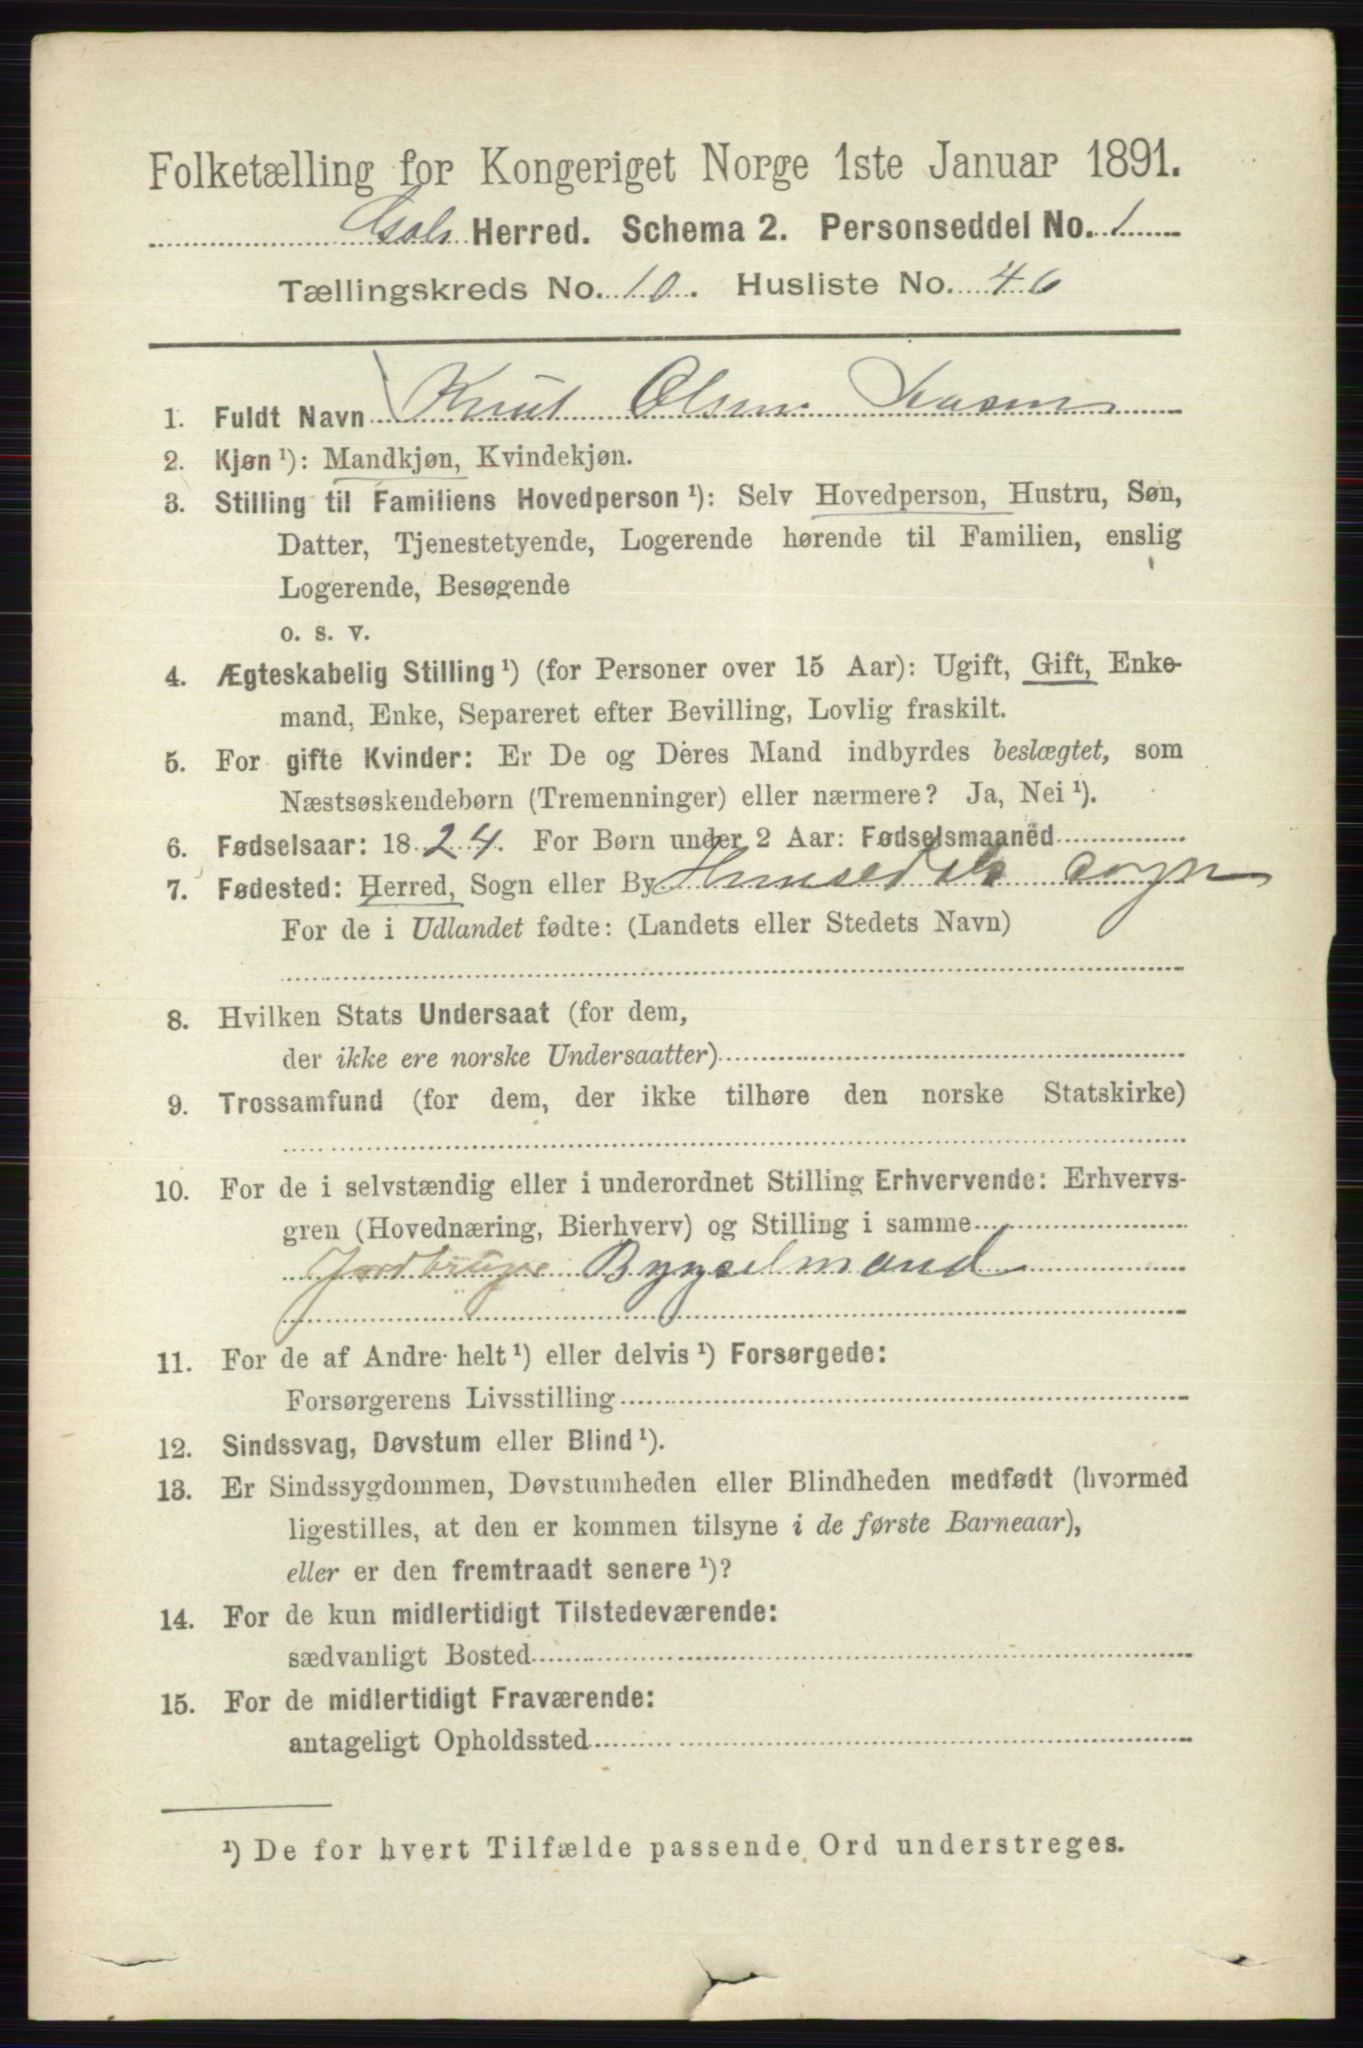 Folketælling for Kongeriget Norge 1ste Januar 1891.
Gols Herred. Schema 2. Personseddel No. 1
Tællingskreds No. 10. Husliste No. 46
1. Fuldt Navn Knut Olsen
2. Kjøn ¹): Mandkjøn, Kvindekjøn.
3. Stilling til Familiens Hovedperson ¹): Selv Hovedperson, Hustru, Søn,
Datter, Tjenestetyende, Logerende hørende til Familien, enslig
Logerende, Besøgende
o. s. v.
4. Ægteskabelig Stilling ¹) (for Personer over 15 Aar): Ugift, Gift, Enke-
mand, Enke, Separeret efter Bevilling, Lovlig fraskilt.
5. For gifte Kvinder: Er De og Deres Mand indbyrdes beslægtet, som
Næstsøskendebørn (Tremenninger) eller nærmere? Ja, Nei ¹).
6. Fødselsaar: 1824. For Børn under 2 Aar: Fødselsmaaned
7. Fødested: Herred, Sogn eller By Hemsedals sogn
For de i Udlandet fødte: (Landets eller Stedets Navn)
8. Hvilken Stats Undersaat (for dem,
der ikke ere norske Undersaatter)
9. Trossamfund (for dem, der ikke tilhøre den norske Statskirke)
10. For de i selvstændig eller i underordnet Stilling Erhvervende: Erhvervs-
gren (Hovednæring, Bierhverv) og Stilling i samme
Jordbruger Bygselmand
11. For de af Andre helt ¹) eller delvis ¹) Forsørgede:
Forsørgerens Livsstilling
12. Sindssvag, Døvstum eller Blind ¹).
13. Er Sindssygdommen, Døvstumheden eller Blindheden medfødt (hvormed
ligestilles, at den er kommen tilsyne i de første Barneaar),
eller er den fremtraadt senere ¹)?
14. For de kun midlertidigt Tilstedeværende:
sædvanligt Bosted
15. For de midlertidigt Fraværende:
antageligt Opholdssted
¹) De for hvert Tilfælde passende Ord understreges.